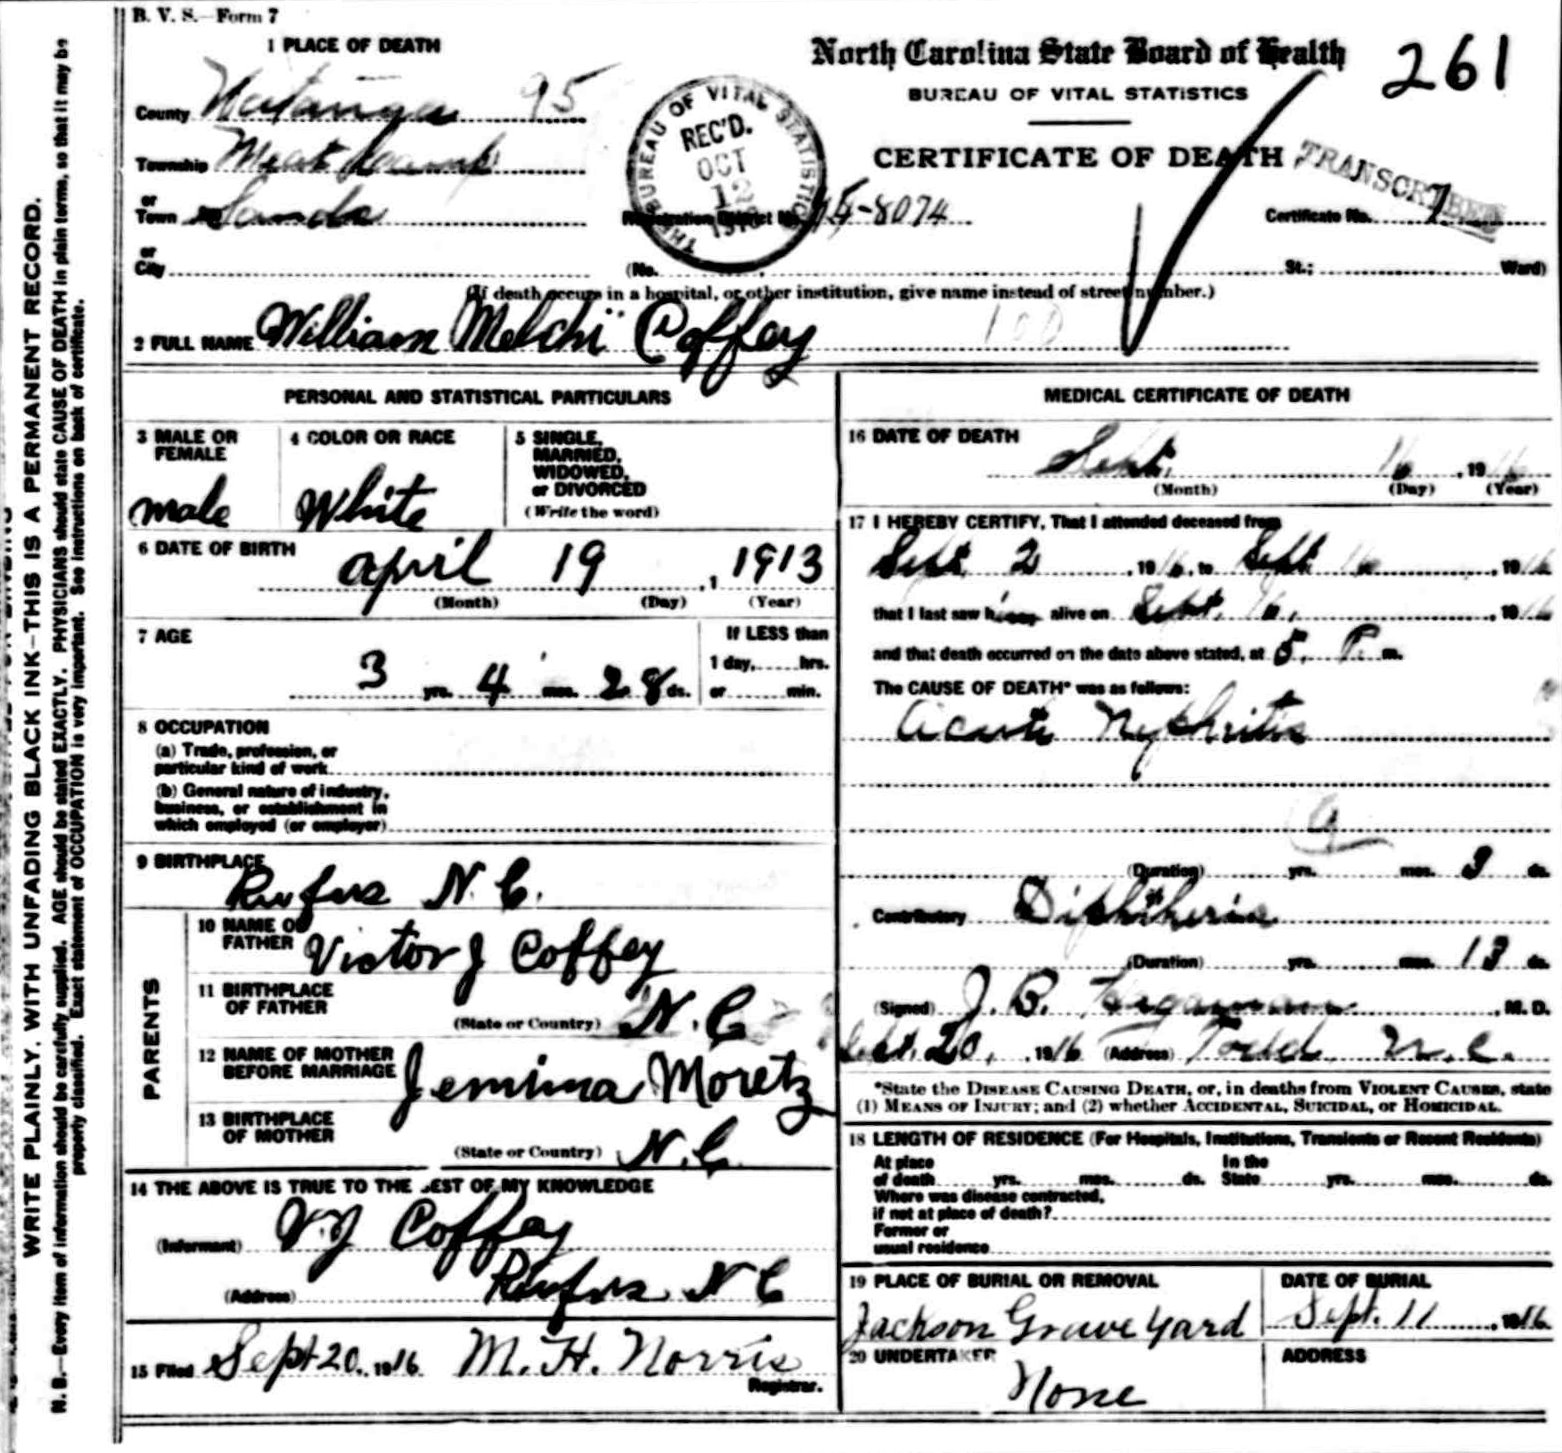 B. V. S.—Form 7
1 PLACE OF DEATH
North Carolina State Board of Health
261
BUREAU OF VITAL STATISTICS
CERTIFICATE OF DEATH
County Watauga 95
Township Meat Camp
or Town Sands
or City
THE BUREAU OF VITAL STATISTICS
REC'D.
OCT
12
Registration District No. 95-8074
TRANSCRIBED
Certificate No. 7
(No. St.; Ward)
(If death occurs in a hospital, or other institution, give name instead of street number.)
2 FULL NAME William Melchi Coffey
PERSONAL AND STATISTICAL PARTICULARS
3 MALE OR FEMALE
male
4 COLOR OR RACE
White
5 SINGLE,
MARRIED,
WIDOWED,
or DIVORCED
(Write the word)
6 DATE OF BIRTH
april 19, 1913
(Month) (Day) (Year)
7 AGE
3 yrs. 4 mos. 28 ds.
If LESS than
1 day, hrs.
or min.
8 OCCUPATION
(a) Trade, profession, or
particular kind of work
(b) General nature of industry,
business, or establishment in
which employed (or employer)
9 BIRTHPLACE
Rufus N. C.
PARENTS
10 NAME OF FATHER
Victor J Coffey
11 BIRTHPLACE OF FATHER
(State or Country) N. C
12 NAME OF MOTHER BEFORE MARRIAGE
Jemima Moretz
13 BIRTHPLACE OF MOTHER
(State or Country) N. C.
14 THE ABOVE IS TRUE TO THE BEST OF MY KNOWLEDGE
(Informant) V. J Coffey
(Address) Rufus N C
15 Filed Sept 20. 1916 M. H. Norris
Registrar.
MEDICAL CERTIFICATE OF DEATH
16 DATE OF DEATH
Sept. 16, 1916
(Month) (Day) (Year)
17 I HEREBY CERTIFY, That I attended deceased from
Sept 2, 1916, to Sept 16, 1916
that I last saw him alive on Sept. 16, 1916
and that death occurred on the date above stated, at 5, P. m.
The CAUSE OF DEATH* was as follows:
Acute Nyphritis
(Duration) yrs. mos. 3 ds.
Contributory Diphtheria
(Duration) yrs. mos. 13 ds.
(Signed) J. B. Hagaman, M. D.
20, 1916 (Address) Todd N. C.
*State the DISEASE CAUSING DEATH, or, in deaths from VIOLENT CAUSES, state
(1) MEANS OF INJURY; and (2) whether ACCIDENTAL, SUICIDAL, or HOMICIDAL.
18 LENGTH OF RESIDENCE (For Hospitals, Institutions, Transients or Recent Residents)
At place of death yrs. mos. ds. In the State yrs. mos. ds.
Where was disease contracted,
if not at place of death?
Former or
usual residence
19 PLACE OF BURIAL OR REMOVAL
Jackson Grave yard
DATE OF BURIAL
Sept. 11, 1916
20 UNDERTAKER
None
ADDRESS
WRITE PLAINLY, WITH UNFADING BLACK INK—THIS IS A PERMANENT RECORD.
N. B.—Every item of information should be carefully supplied. AGE should be stated EXACTLY. PHYSICIANS should state CAUSE OF DEATH in plain terms, so that it may be
properly classified. Exact statement of OCCUPATION is very important. See instructions on back of certificate.